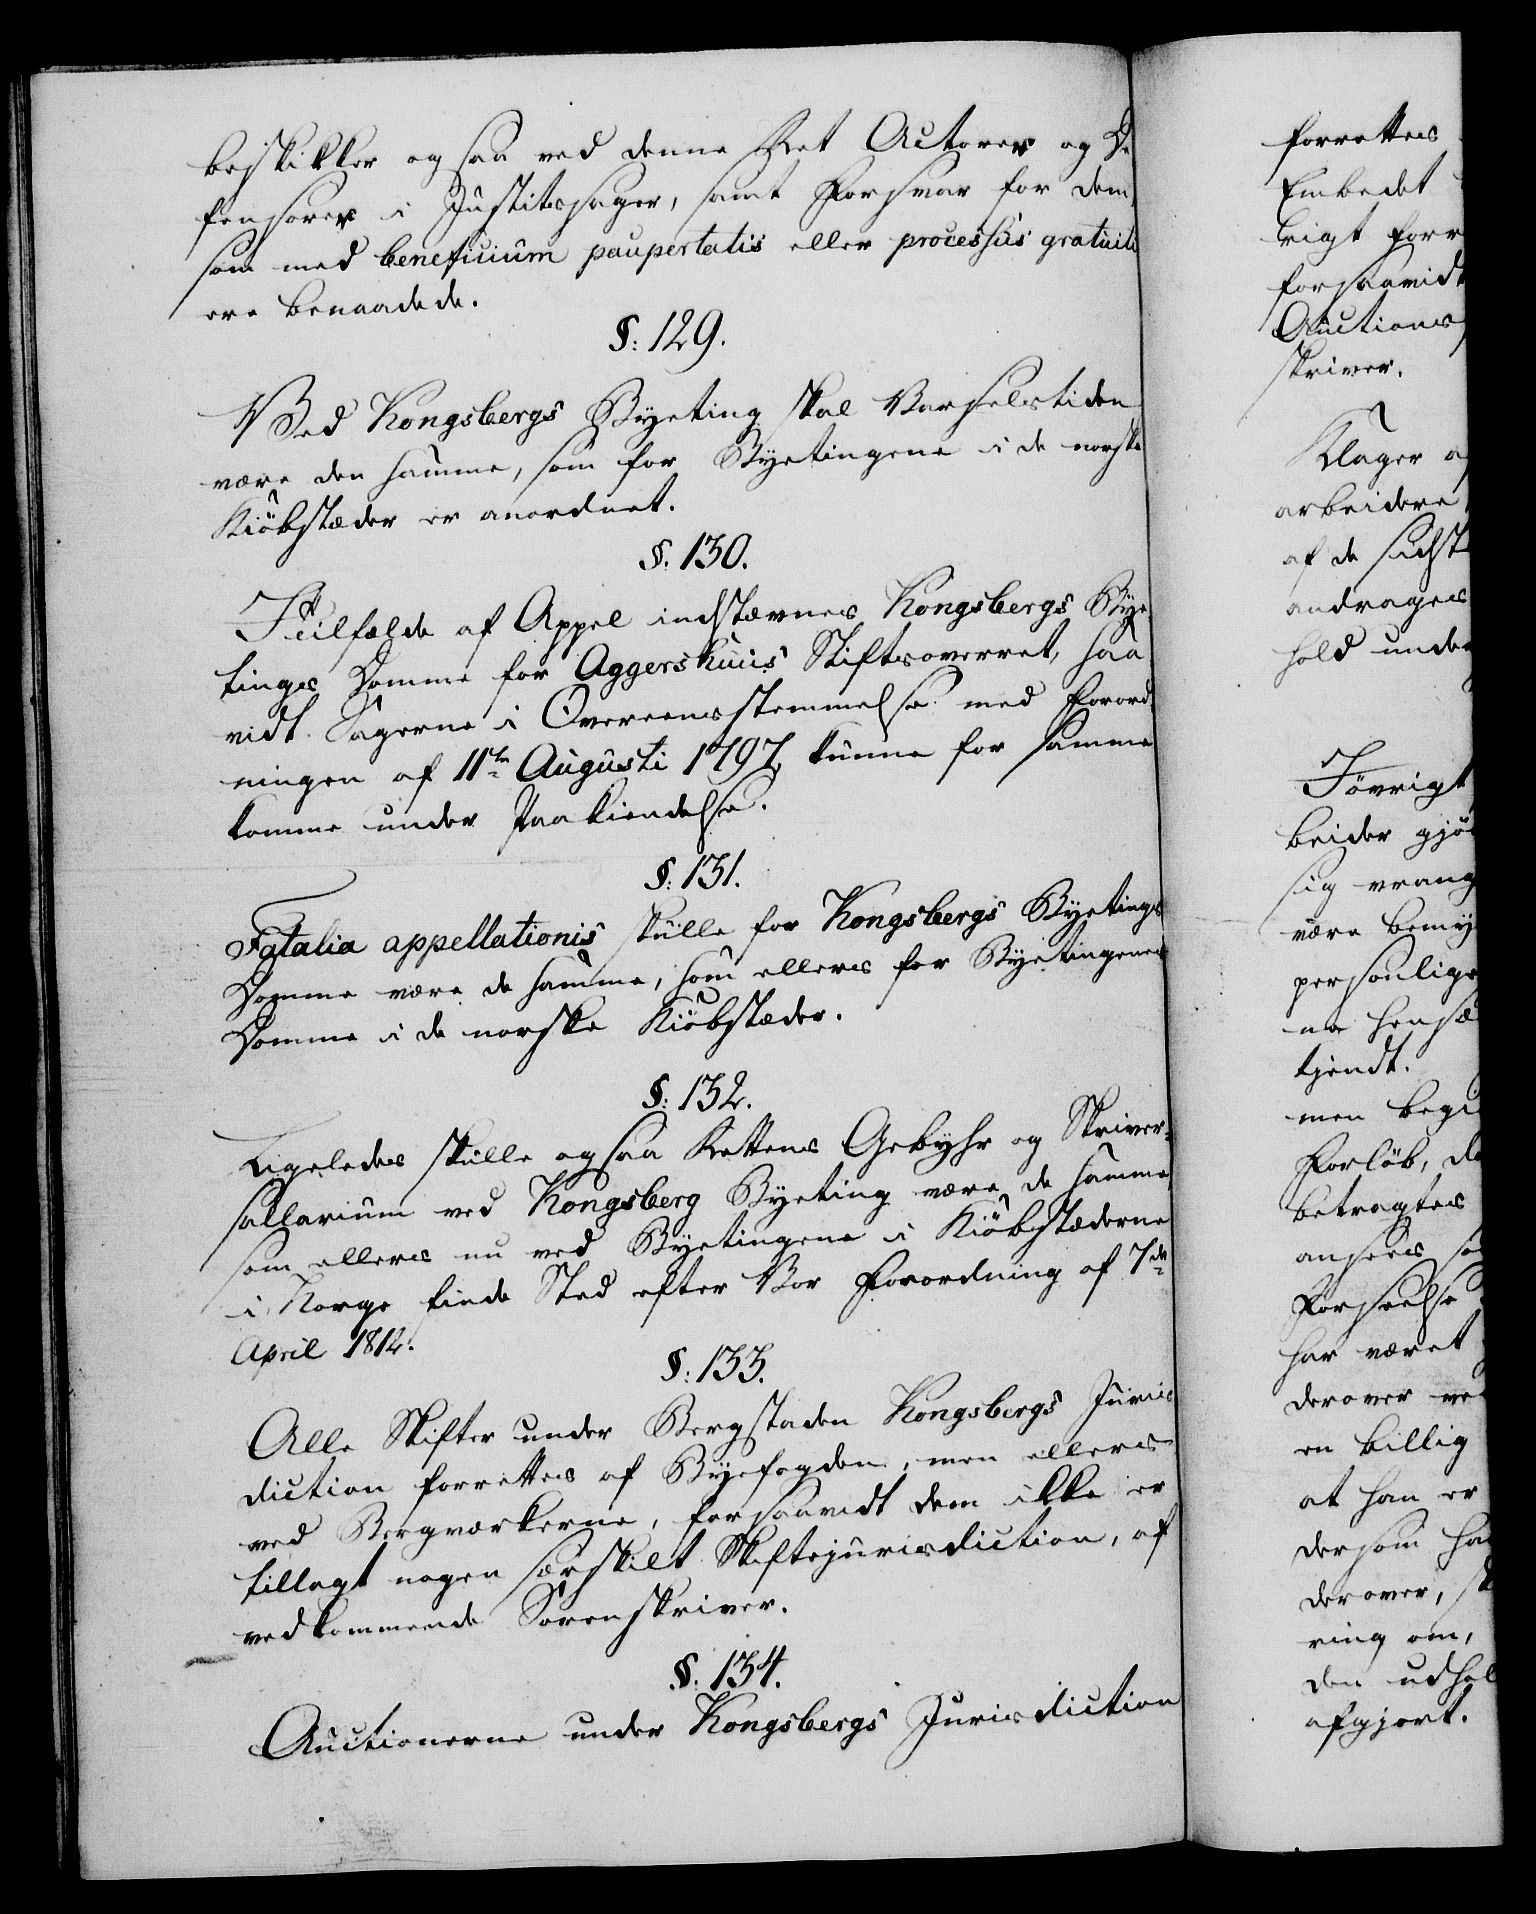 beskikker ogsaa ved denne Ret Actorer og De
fensorer i Justitssager, samt Forsvar for dem
som med beneficium paupertatis eller processus gratuiti
ere benaadede.
§: 129.
Ved Kongsbergs Byeting skal Varselstiden
være den samme, som for Byetingene i de norske
Kiöbstæder er anordnet.
§: 130.
I Tilfælde af Appel indstævnes Kongsbergs Bye
tings Domme for Aggershuus Stiftsoverret, saa
vidt Sagerne i Overeensstemmelse med Forord
ningen af 11te Augusti 1797, kunne for samme
komme under Paakiendelse.
§: 131.
Fatalia appellationis skulle for Kongsbergs Byetings
Domme være de samme, som ellers for Byetingenes
Domme i de norske Kiöbstæder.
§: 132.
Ligeledes skulle ogsaa Rettens Gebyhr og Skriver-
sallarium ved Kongsberg Byeting være de samme,
som ellers nu ved Byetingene i Kiöbstæderne
i Norge finde Sted efter Vor Forordning af 7de
April 1812.
§: 133.
Alle Skifter under Bergstaden Kongsbergs Juris
diction forrettes af Byefogden, men ellers
ved Bergværkerne, forsaavidt dem ikke er
tillagt nogen særskilt Skiftejurisdiction, af
vedkommende Sorenskriver.
§: 134.
Auctionerne under Kongsbergs Jurisdiction
forrettes
Embedet
brigt forr
forsaavidt
Auctions
skriver.
Klager a
arbeidere
af de
andrages
hold under
Iövrigt
beider gjö
sig vrang
være bemy
personlige
ne hensæ
tjendt.
men begi
Forløb, de
betragtes
ansees so
Forseelse
har været
derover ve
en billig
at han er
dersom ha
derover, sk
ring om,
den udhol
afgjort.